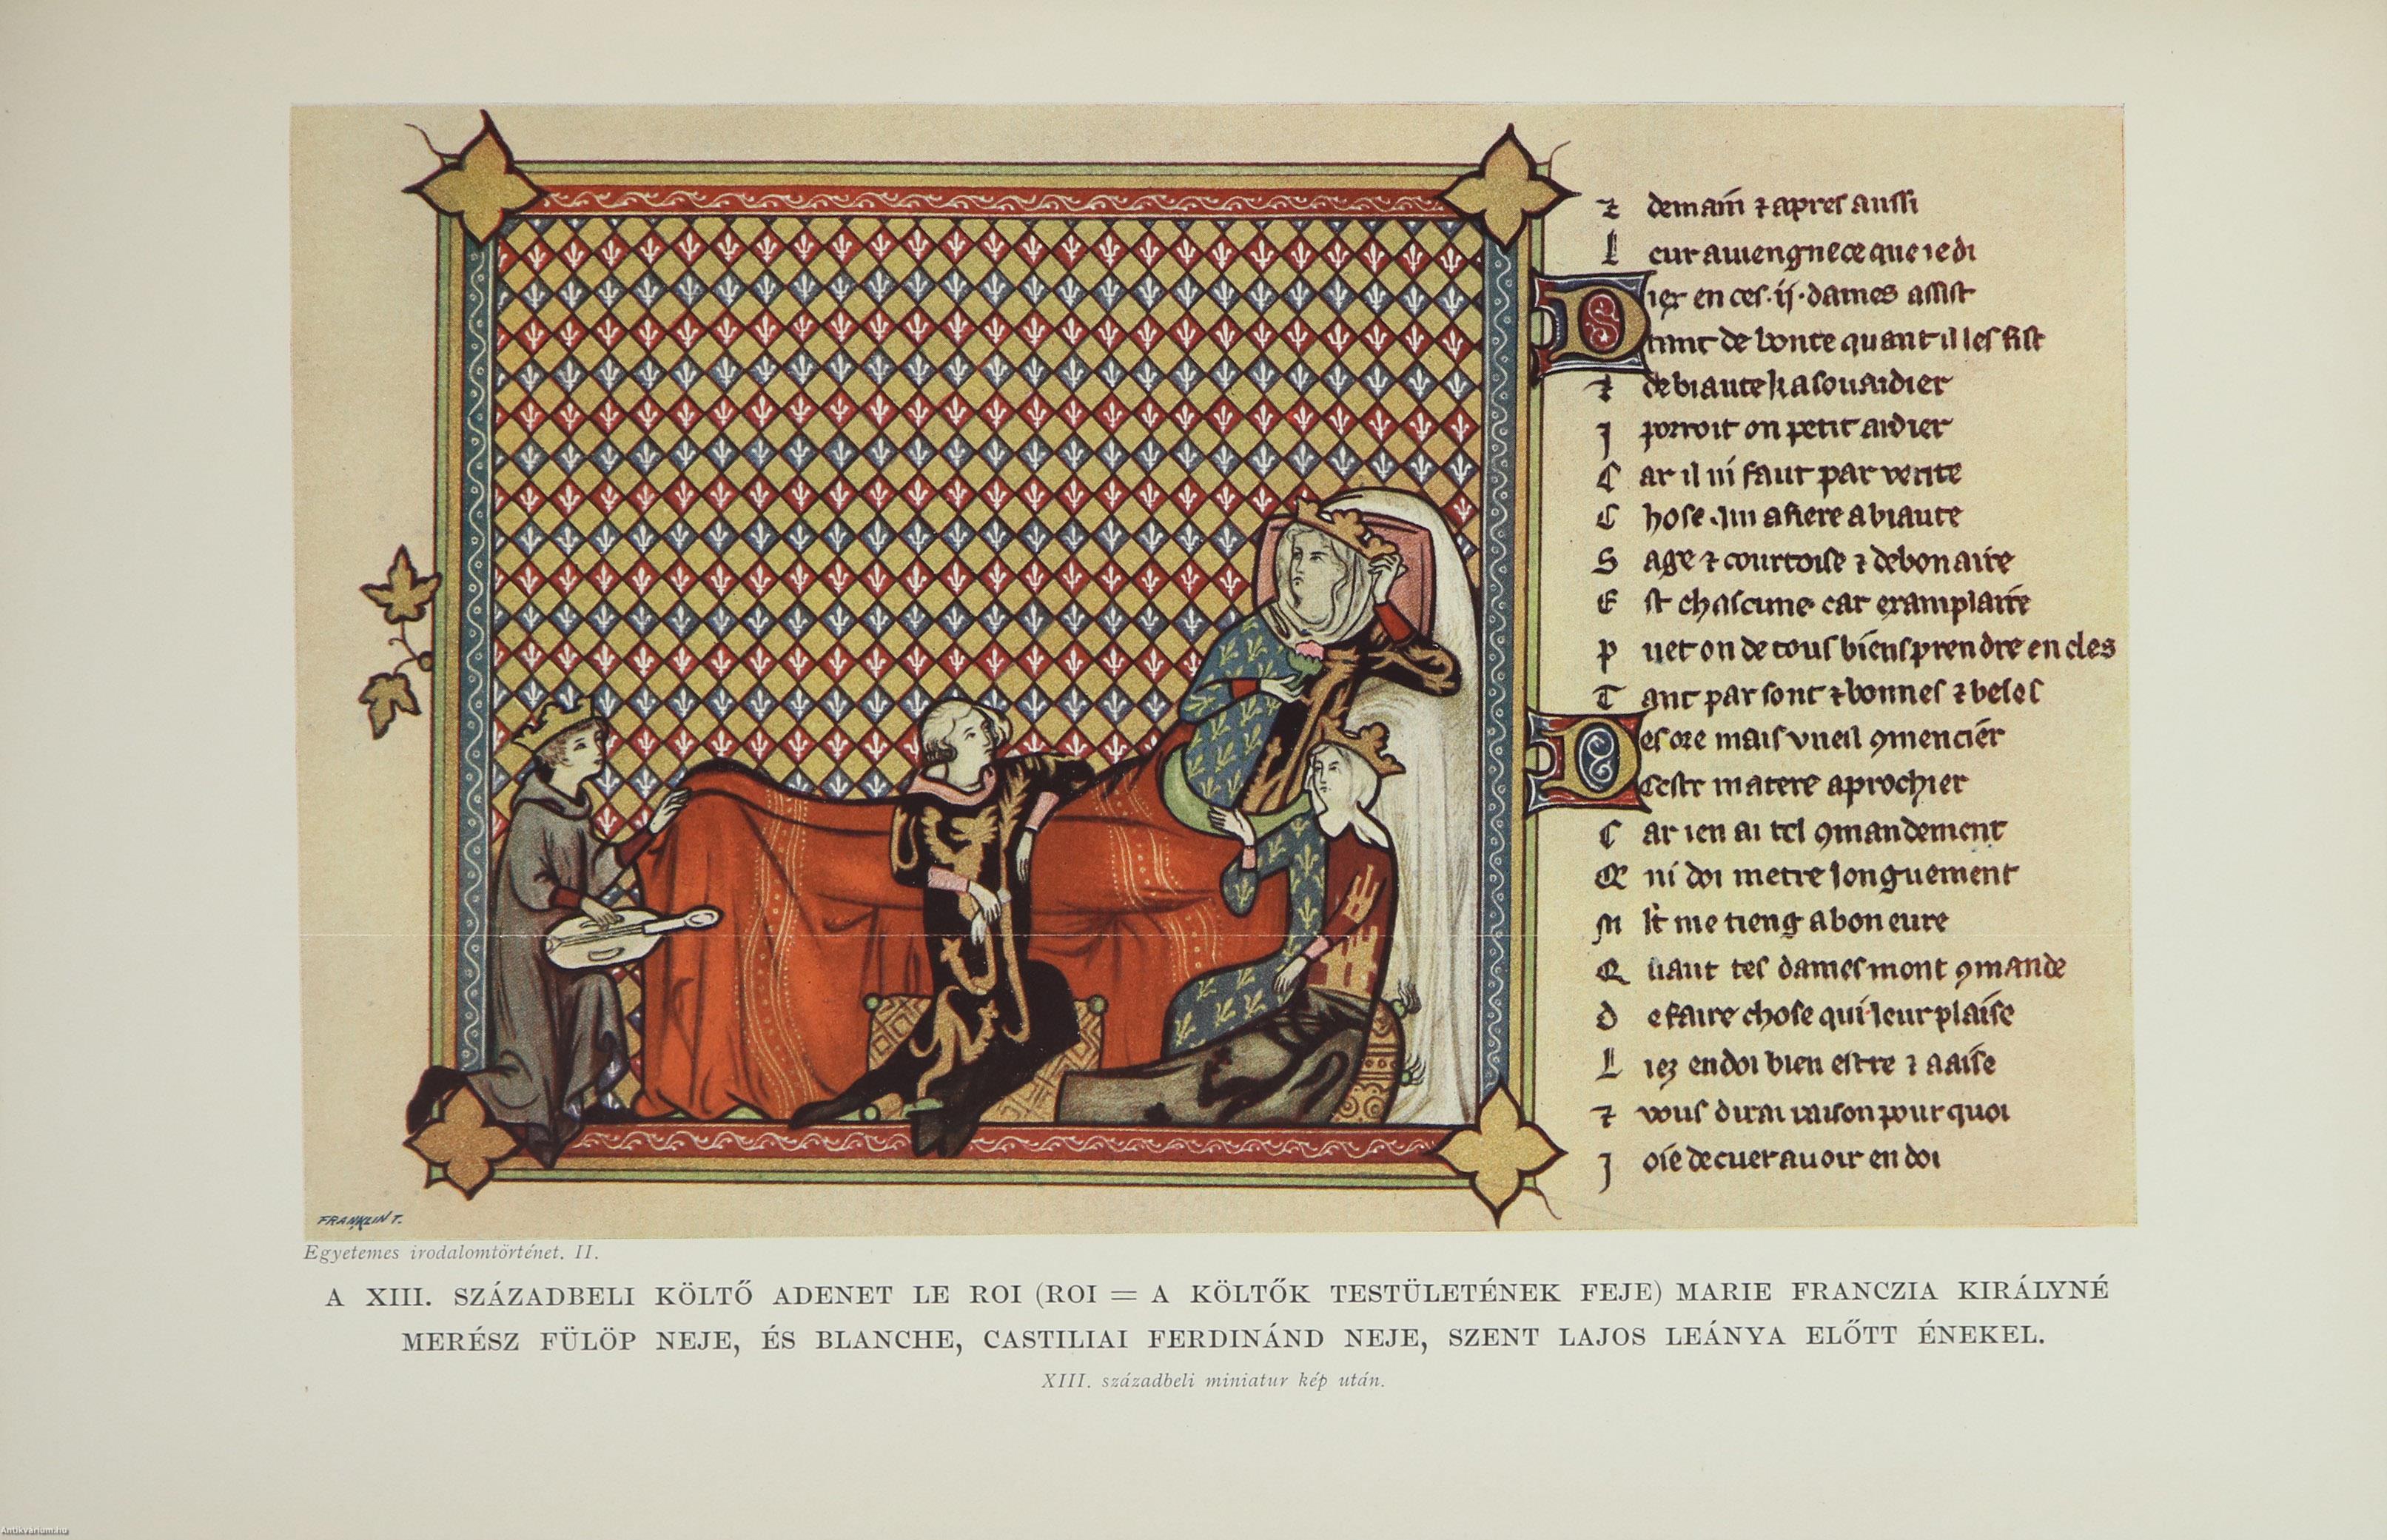 ⁊ demain ⁊ apres aussi
L eur aviengne ce que ie di
Diex en ces .ij. dames assist
tant de bonte quant il les fist
⁊ de biaute k a souhaidier
J porroit on petit aidier
C ar il ni faut par verite
C hose qui afiere a biaute
S age ⁊ courtoise ⁊ debonaire
E st chascune car examplaire
P uet on de tous biens prendre en eles
T ant par sont ⁊ bonnes ⁊ beles
Des ore mais vueil ꝯmencier
ceste matere aprochier
C ar ien ai tel ꝯmandement
Q ni doi metre longuement
M lt me tieng a bon eure
Q uant tes dames mont ꝯmande
D e faire chose qui leur plaise
L iez en doi bien estre ⁊ aaise
⁊ vous dirai raison pour quoi
J oie de cuer avoir en doi
FRANKLIN T.
Egyetemes irodalomtörténet. II.
A XIII. SZÁZADBELI KÖLTŐ ADENET LE ROI (ROI = A KÖLTŐK TESTÜLETÉNEK FEJE) MARIE FRANCZIA KIRÁLYNÉ
MERÉSZ FÜLÖP NEJE, ÉS BLANCHE, CASTILIAI FERDINÁND NEJE, SZENT LAJOS LEÁNYA ELŐTT ÉNEKEL.
XIII. századbeli miniatur kép után.
Antikvarium.hu